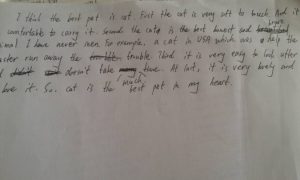 I think the best pet is cat. First the cat is very soft to touch. And it
comfortable to carry it. Second the cat is the best honest and brave
animal I have never seen. For example, a cat in USA which was help the
run away the trouble. Third it is very easy to look after
doesn't take much time. At last, it is very lovely and
love it. So. cat is the best pet in my heart.